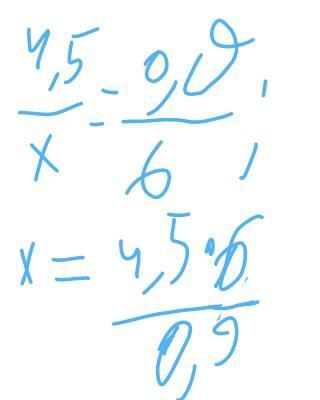 4,5/x = 0,9/6,
x = 4,5·6/0,9